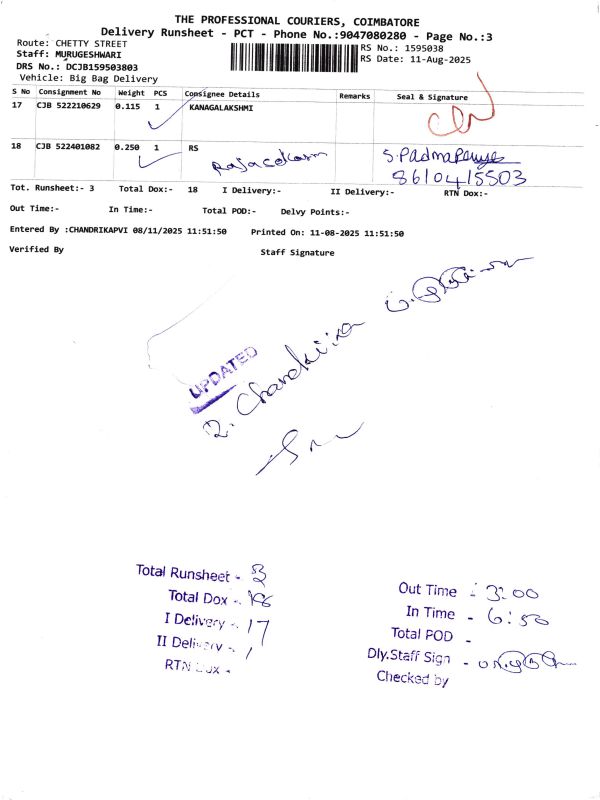 THE PROFESSIONAL COURIERS, COIMBATORE
Delivery Runsheet - PCT - Phone No.:9047080280 - Page No.:3
Route: CHETTY STREET
Staff: MURUGESHWARI
DRS No.: DCJB159503803
Vehicle: Big Bag Delivery
RS No.: 1595038
RS Date: 11-Aug-2025
S No Consignment No Weight PCS Consignee Details Remarks Seal & Signature
17 CJB 522210629 0.115 1 KANAGALAKSHMI
18 CJB 522401082 0.250 1 RS
8610415503
Tot. Runsheet:- 3 Total Dox:- 18 I Delivery:- II Delivery:- RTN Dox:-
Out Time:- In Time:- Total POD:- Delvy Points:-
Entered By :CHANDRIKAPVI 08/11/2025 11:51:50 Printed On: 11-08-2025 11:51:50
Verified By Staff Signature
UPDATED
Total Runsheet - 3
Total Dox - 18
I Delivery - 17
II Delivery - 1
RTN Dox -
Out Time - 3:00
In Time - 6:50
Total POD -
Dly.Staff Sign -
Checked by